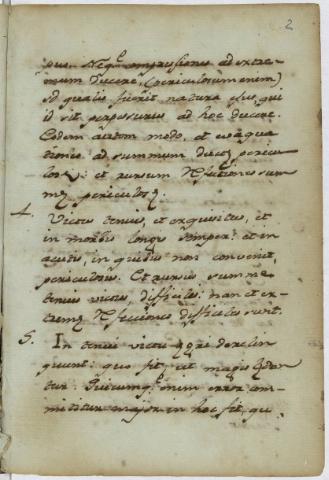 2
que. Neq; compressiones ad extre-
mum ducere, (periculosum enim)
sed qualis fuerit natura eius, qui
id sit perpessurus ad hoc ducere.
Eodem autem modo, et evacua
tiones ad summum ducere, pericu
losum: et rursum refectiones sum
me periculosae.
4. Victus tenuis, et exquisitus, et
in morbis longis semper: et in
acutis, in quibus non convenit,
periculosus. Et rursus summe
tenuis victus, difficilis: nam et ex-
treme refectiones difficiles sunt.
5. In tenui victu aegri delin
quunt: quo fit, ut magis ledan
tur. Quicumq; enim error com-
mittitur major in hoc fit, qu